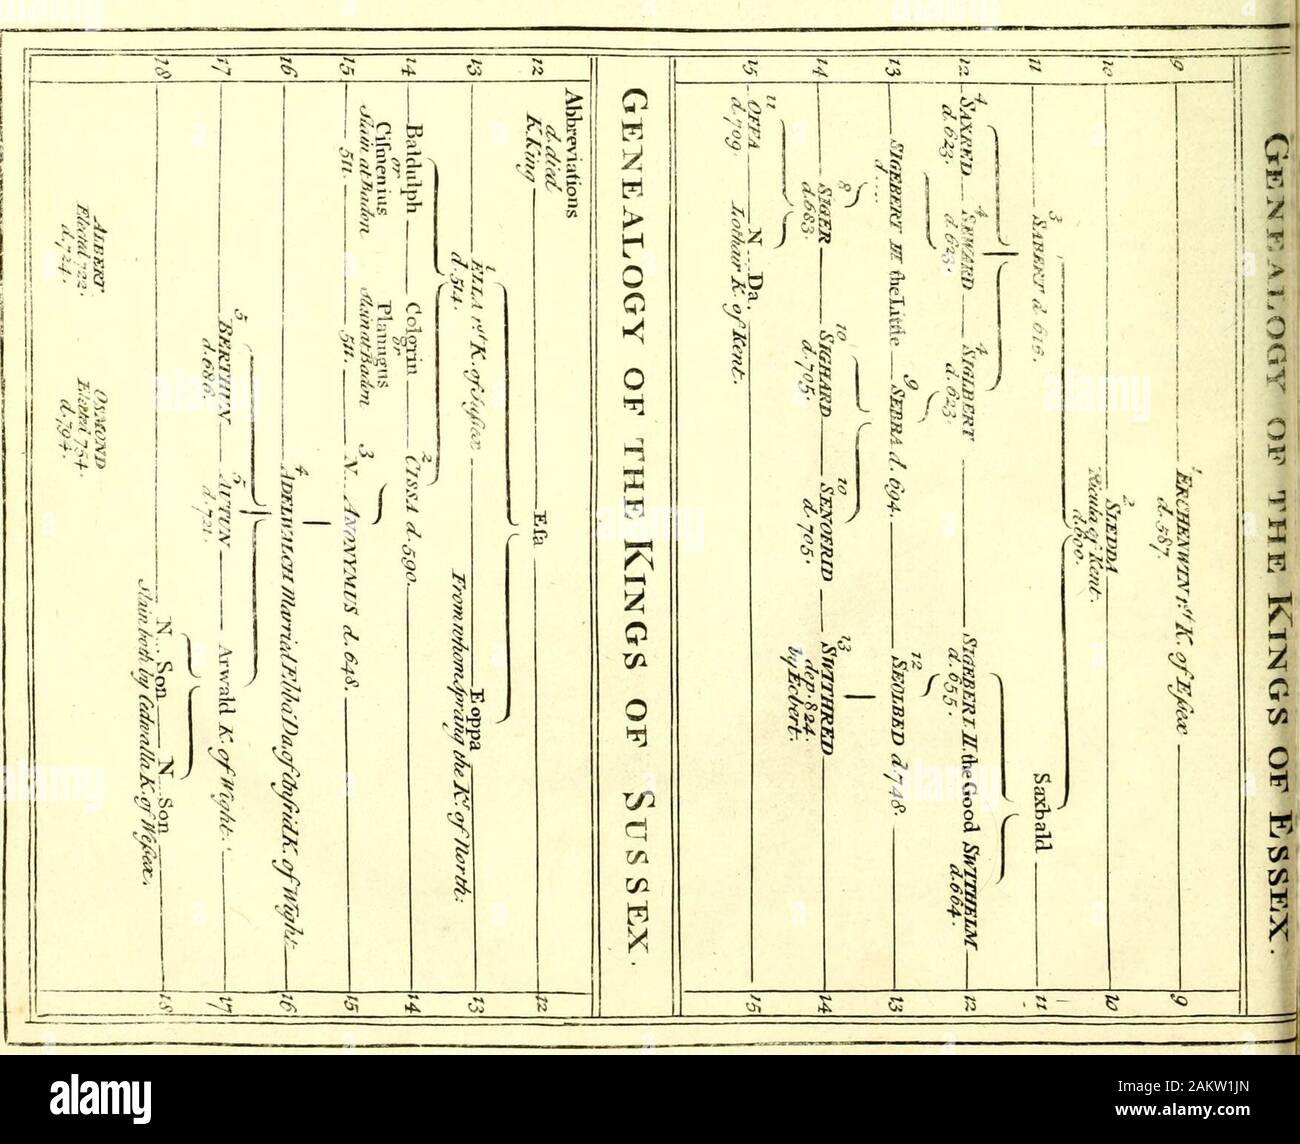 GENEALOGY OF THE KINGS OF ESSEX.
9 1 ERCHENWIN 1st K. of Eſsex 9
d. 587.
10 2 SLEDDA 10
Ricula of Kent.
d. 600.
11 3 SABERT d. 616. Saxbald 11
12 4 SAXRED 4 SEWARD 4 SIGEBERT SIGEBERT II. the Good SWITHELM 12
d. 623. d. 623. d. 623. d. 655. d. 664.
13 SIGEBERT III the Little 9 SEBBA d. 694. 12 SEOLBED d. 748. 13
d ....
14 8 SIGER 10 SIGHARD 10 SENOFRID 13 SWITHRED 14
d. 683. d. 705. d. 705. dep. 824.
by Ecbert.
15 11 OFFA N... Da. 15
d. 709. Lothair K. of Kent.
GENEALOGY OF THE KINGS OF SUSSEX.
Abbreviations
d. died
K. King
12 Eſa 12
13 1 ELLA 1st K. of Suſsex Eoppa 13
d. 514. From whom sprang the Ks. of North:
14 Baldulph Colgrin 2 CISSA d. 590. 14
or or
Ciſmenius Plannugus
slain at Badon slain at Badon
15 511. 511. 3 N... ANONYMUS d. 648. 15
16 4 ADELWALCH married Ebba Da. of Eyfrid K. of Wight. 16
17 5 BERTHUN 5 AUTUN Arwald K. of Wight. 17
d. 686. d. 721.
18 N... Son N... Son 18
Slain both by Cedwalla K. of Weſsex.
ALBERT OSMOND
Elected 722. Elected 754.
d. 724. d. 794.
alamy
Image ID: 2AKW1JN
www.alamy.com